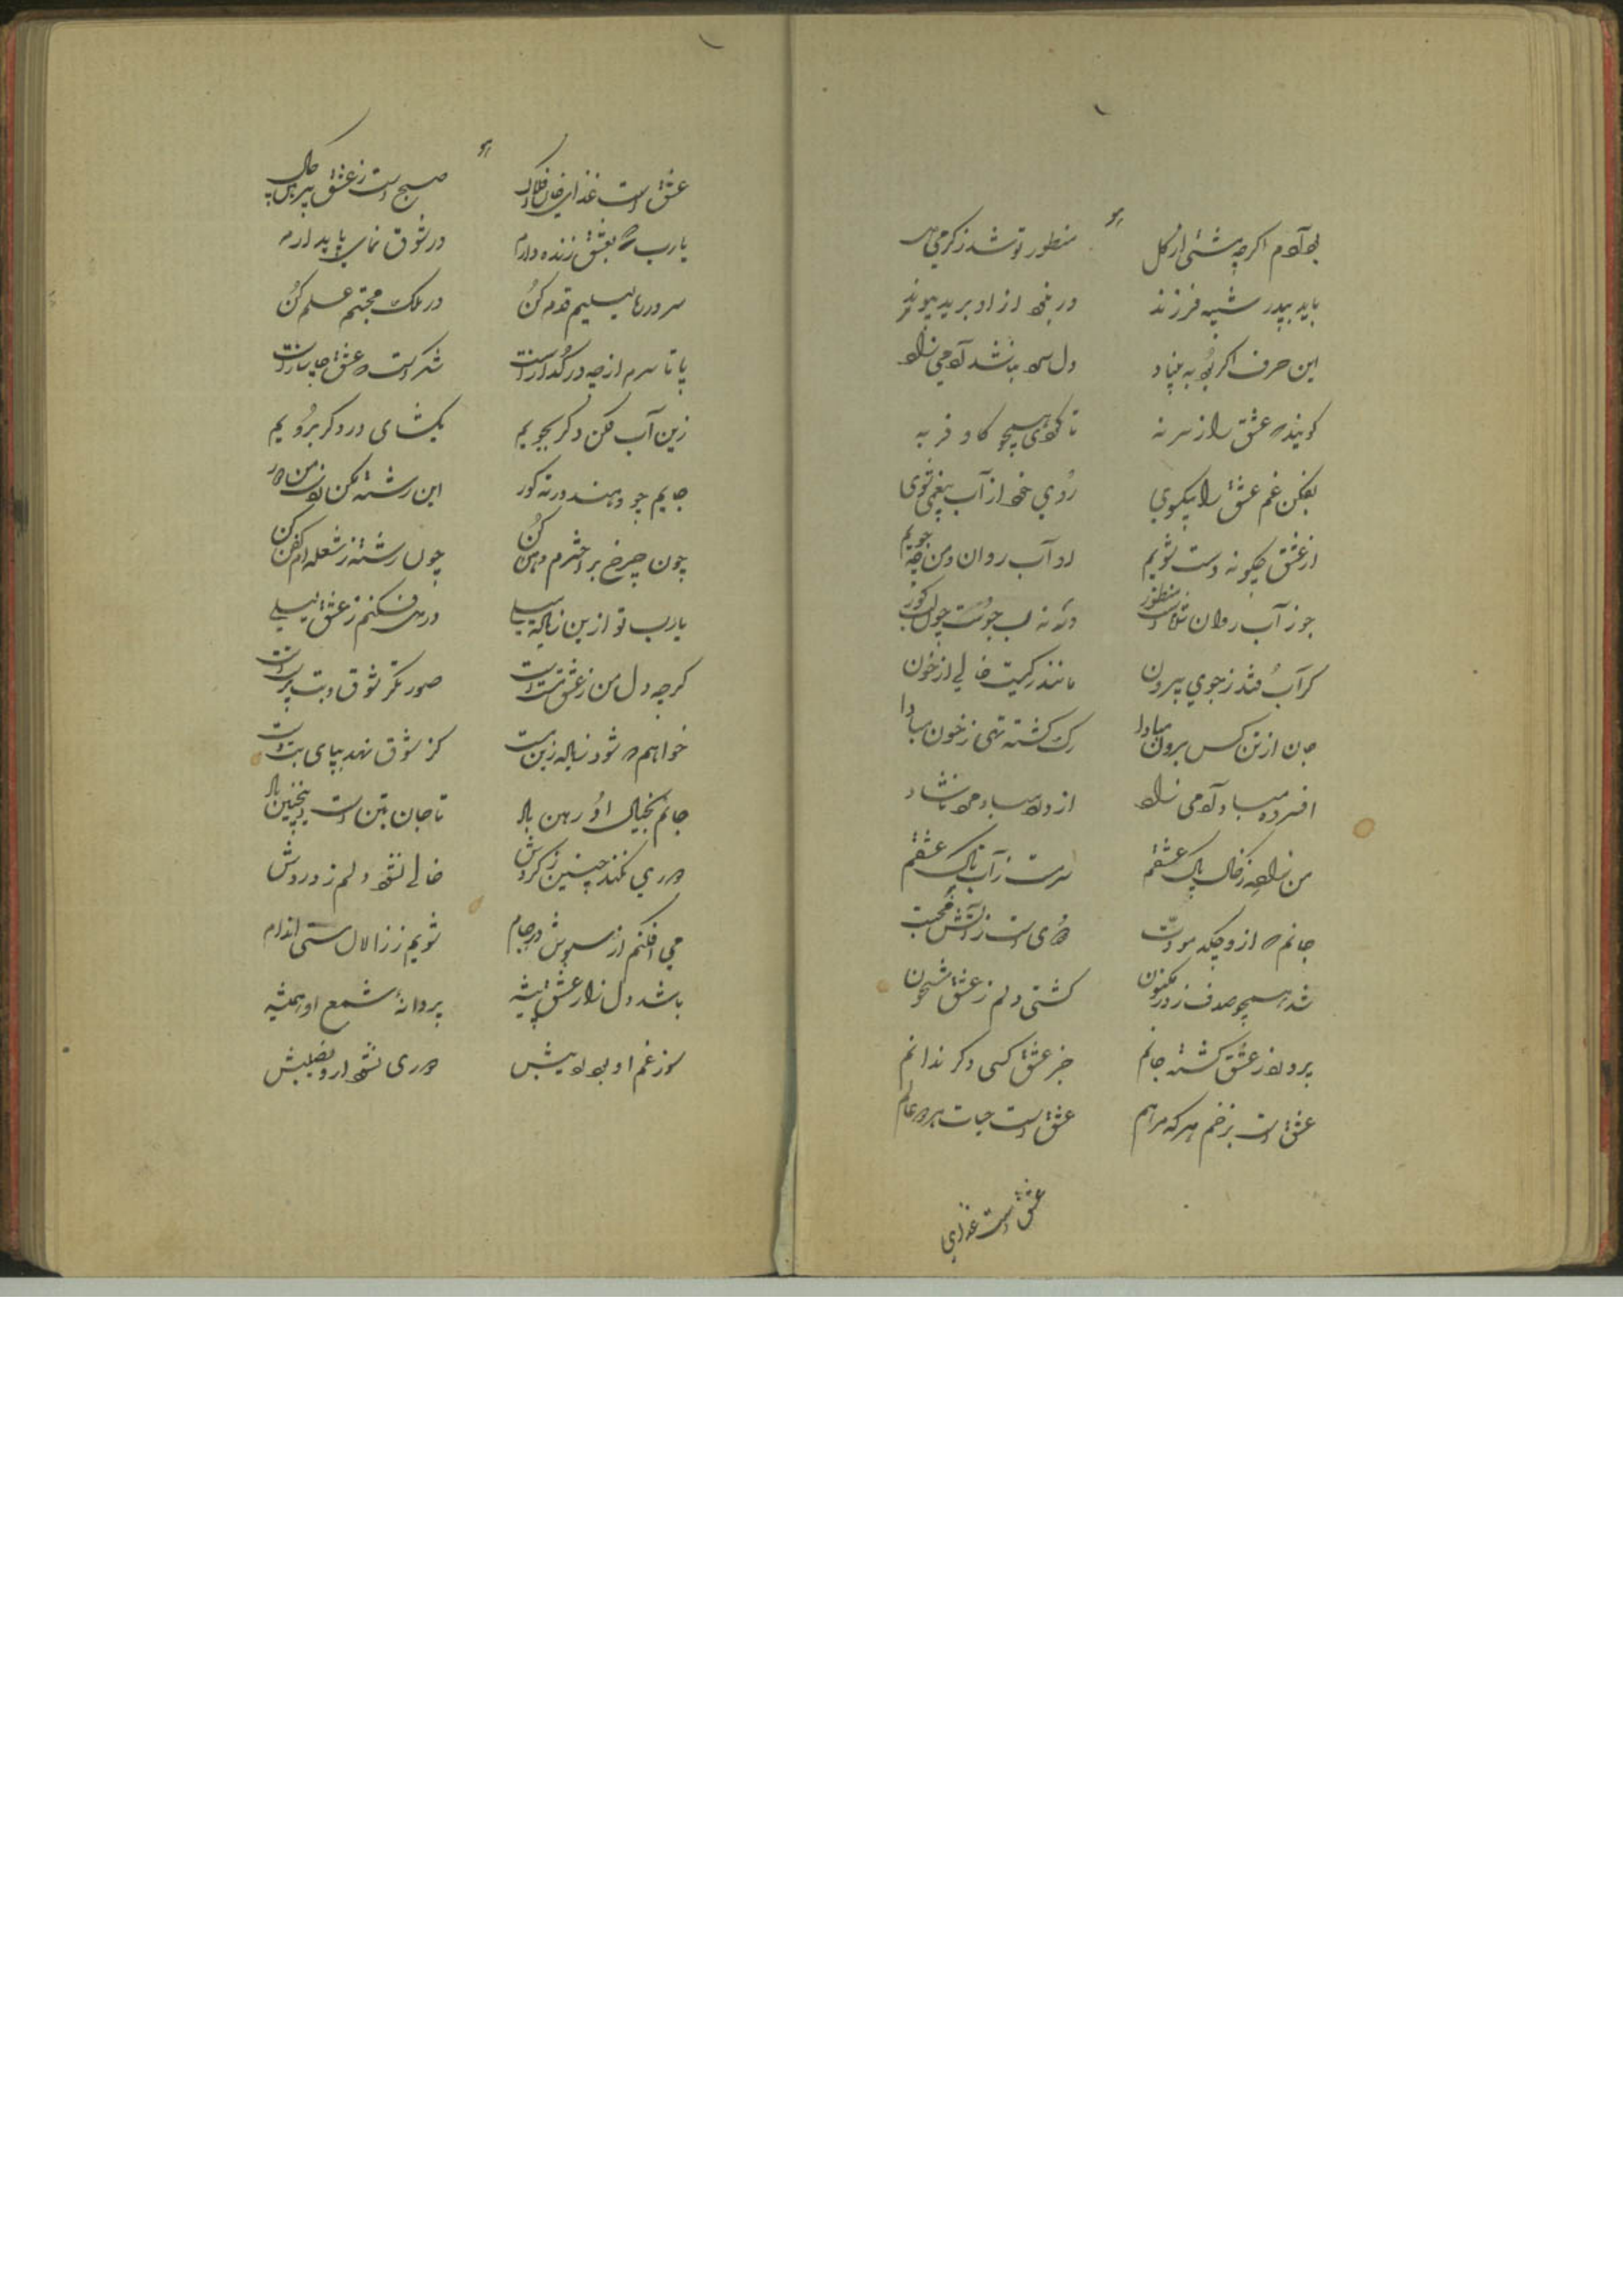 بود آدم اگرچه مشتی از گل منظور تو شد ز گرمی دل
باید بپدر شبیه فرزند ور نه خود از او برید پیوند
این حرف اگر بود به بنیاد دل سرد نباشد آدمی زاد
گویند که عشق را ز سر نه تا کی همچو گاو فربه
بفکن غم عشق را بیکسوی روی خود از آب بیغمی شوی
از عشق چگونه دست شویم او آب روان و من چو جویم
جو ز آب روان شداست منظور ورنه نه لب جوست چون لب گور
گر آب فتد ز جوی بیرون مانند رگیست خالی از خون
جان از تن کس برون مبادا رگ گشته تهی ز خون مبادا
افسرده مباد آدمی زاد
من زاده ز خاک پاک عشقم سرمست ز آب تاک عشقم
جانم که ازو چکد مودت دودی است ز آتش محبت
شد همچو صدف ز در مکنون کشتی دلم ز عشق مشحون
پرورده ز عشق گشته جانم جز عشق کسی دگر ندانم
عشق است بزخم هرکه مرهم عشق است حیات هر دو عالم
عشق است غذای
عشق است غذای جان افلاک صبح است ز عشق پیرهن چاک
یا رب که بعشق زنده دارم در شوق نمای پایدارم
سر در ره تسلیم قدم کن در ملک محبتم علم کن
پا تا سرم ار چه در گداز است شکر است که عشق چاره ساز است
زین آب مکن دگر بجویم بگشای در دگر برویم
جایم چو دهند در ته گور این رشته مکن ز من دور
چون چرخ بر اخترم وطن کن چون رشته ز شعله‌ام کفن کن
یا رب تو ازین زیاد میلی در دل فکنم ز عشق سیلی
گرچه دل من ز عشق مست است صورتگر شوق و بت پرست است
خواهم که شود زیاده زین مست کز شوق نهد بپای بت دست
جانم بخیال او رهین باد تا جان بتن است اینچنین باد
دوری نکند چنین ز گردش خالی نشود دلم ز دردش
می افکنم از سبوش در جام شویم ز زلال مستی اندام
باشد دل زار عشق پیشه پروانهٔ شمع او همیشه
سوز غم او بود دوری نشود ازو نصیبش